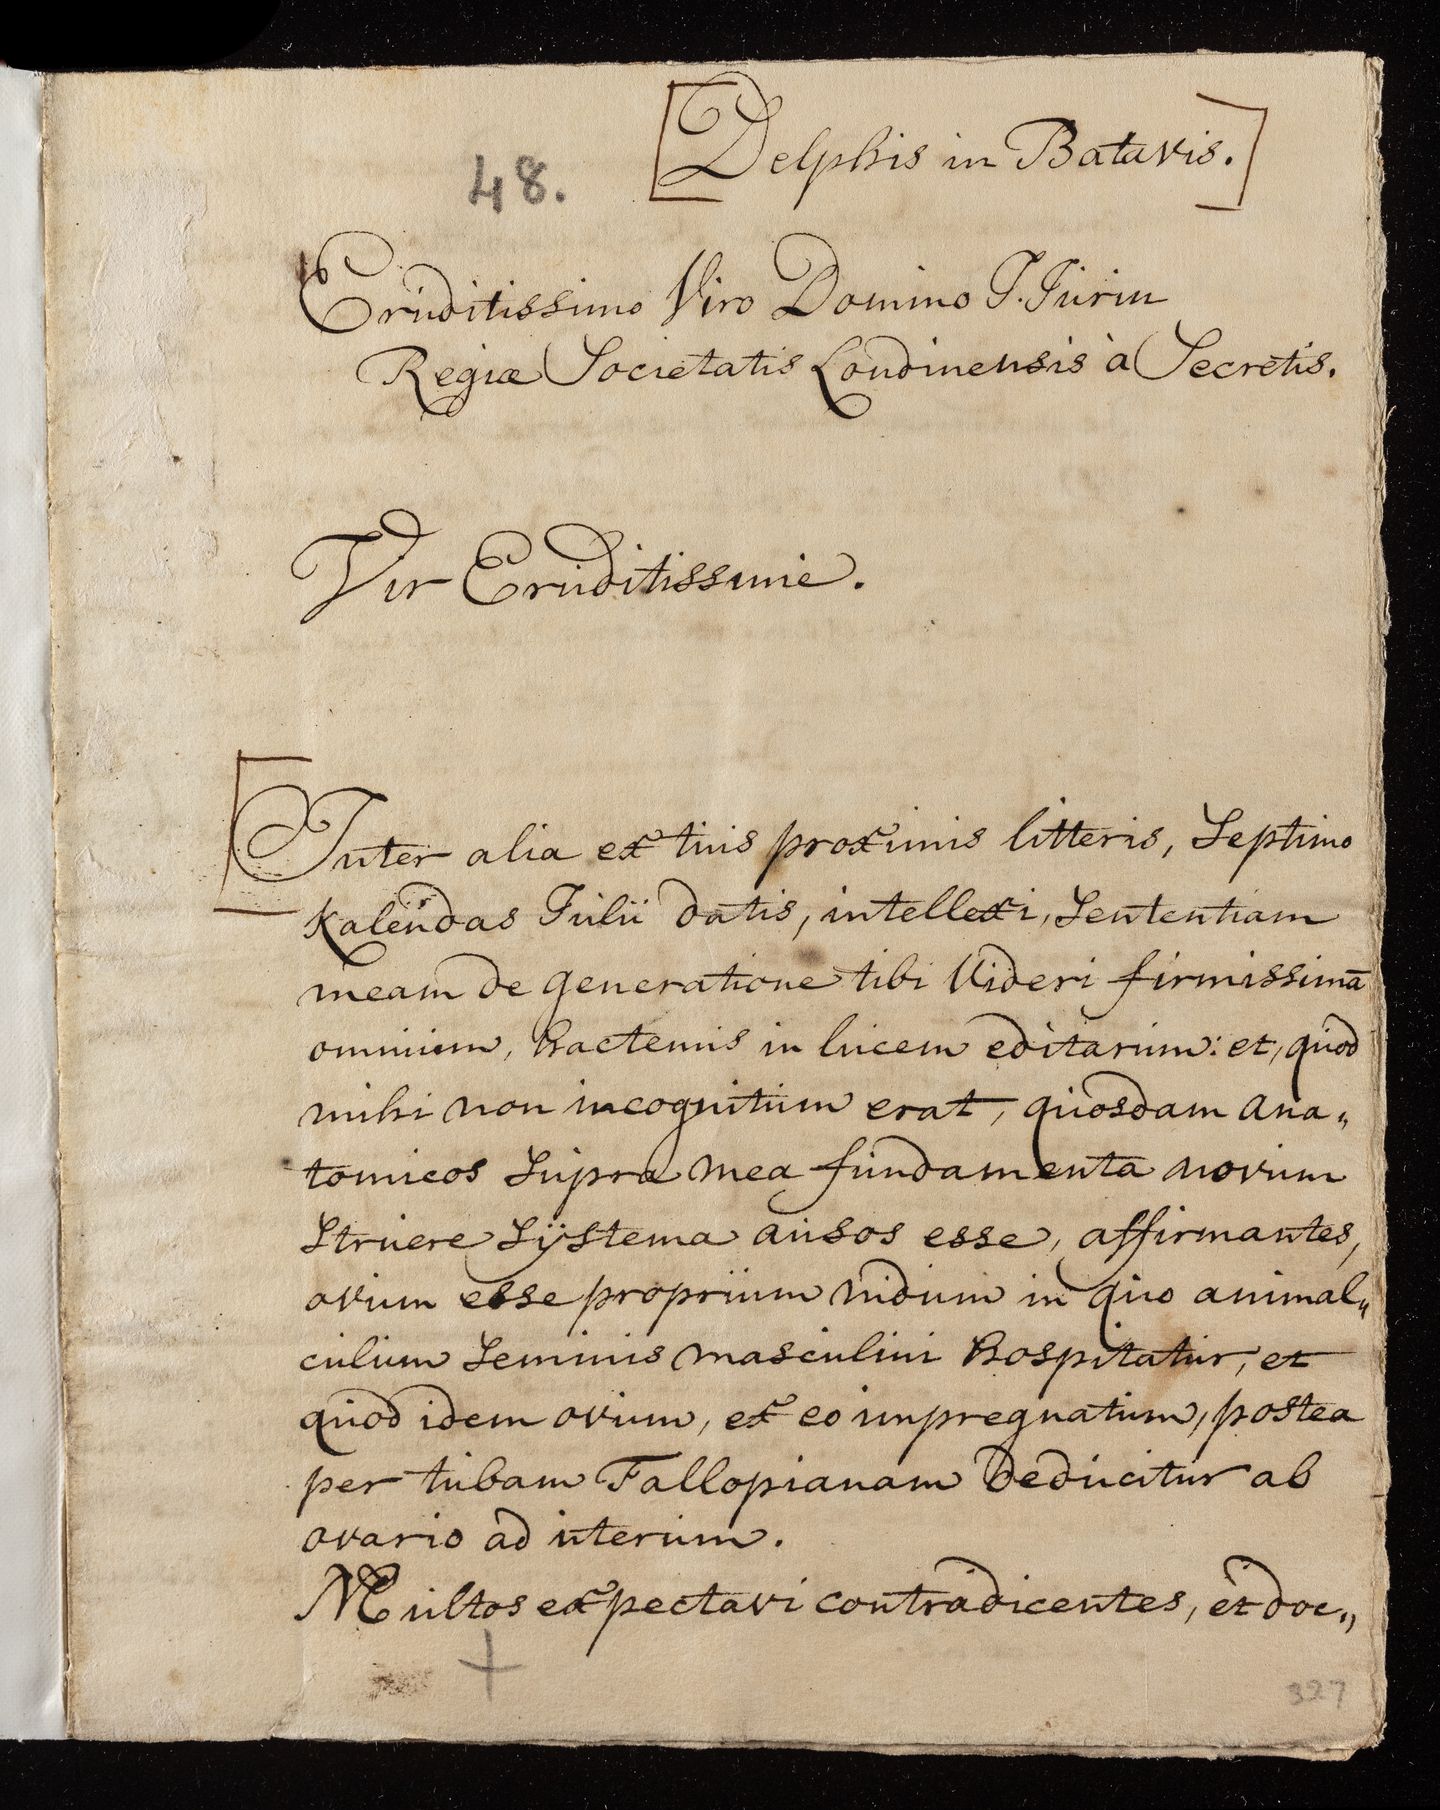 [Delphis in Batavis.]
48.
Eruditissimo Viro Domino J. Jurin
Regiæ Societatis Londinensis à Secretis.
Vir Eruditissime.
[Inter alia ex tuis proximis litteris, Septimo
Kalendas Julii datis, intellexi, Sententiam
meam de generatione tibi Videri firmissimā
omnium, hactenus in lucem editarum: et, quod
mihi non incognitum erat, quosdam ana„
tomicos Supra mea fundamenta novum
Struere Sÿstema ausos esse, affirmantes,
ovum esse proprium nidum in quo animal„
culum Seminis masculini hospitatur, et
quod idem ovum, ex eo impregnatum, postea
per tubam Fallopianam deducitur ab
ovario ad uterum.
Multos expectavi contradicentes, et doc„
+
327